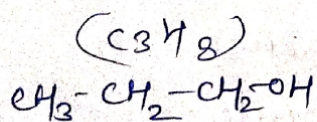 (C3H8)
CH3-CH2-CH2-OH